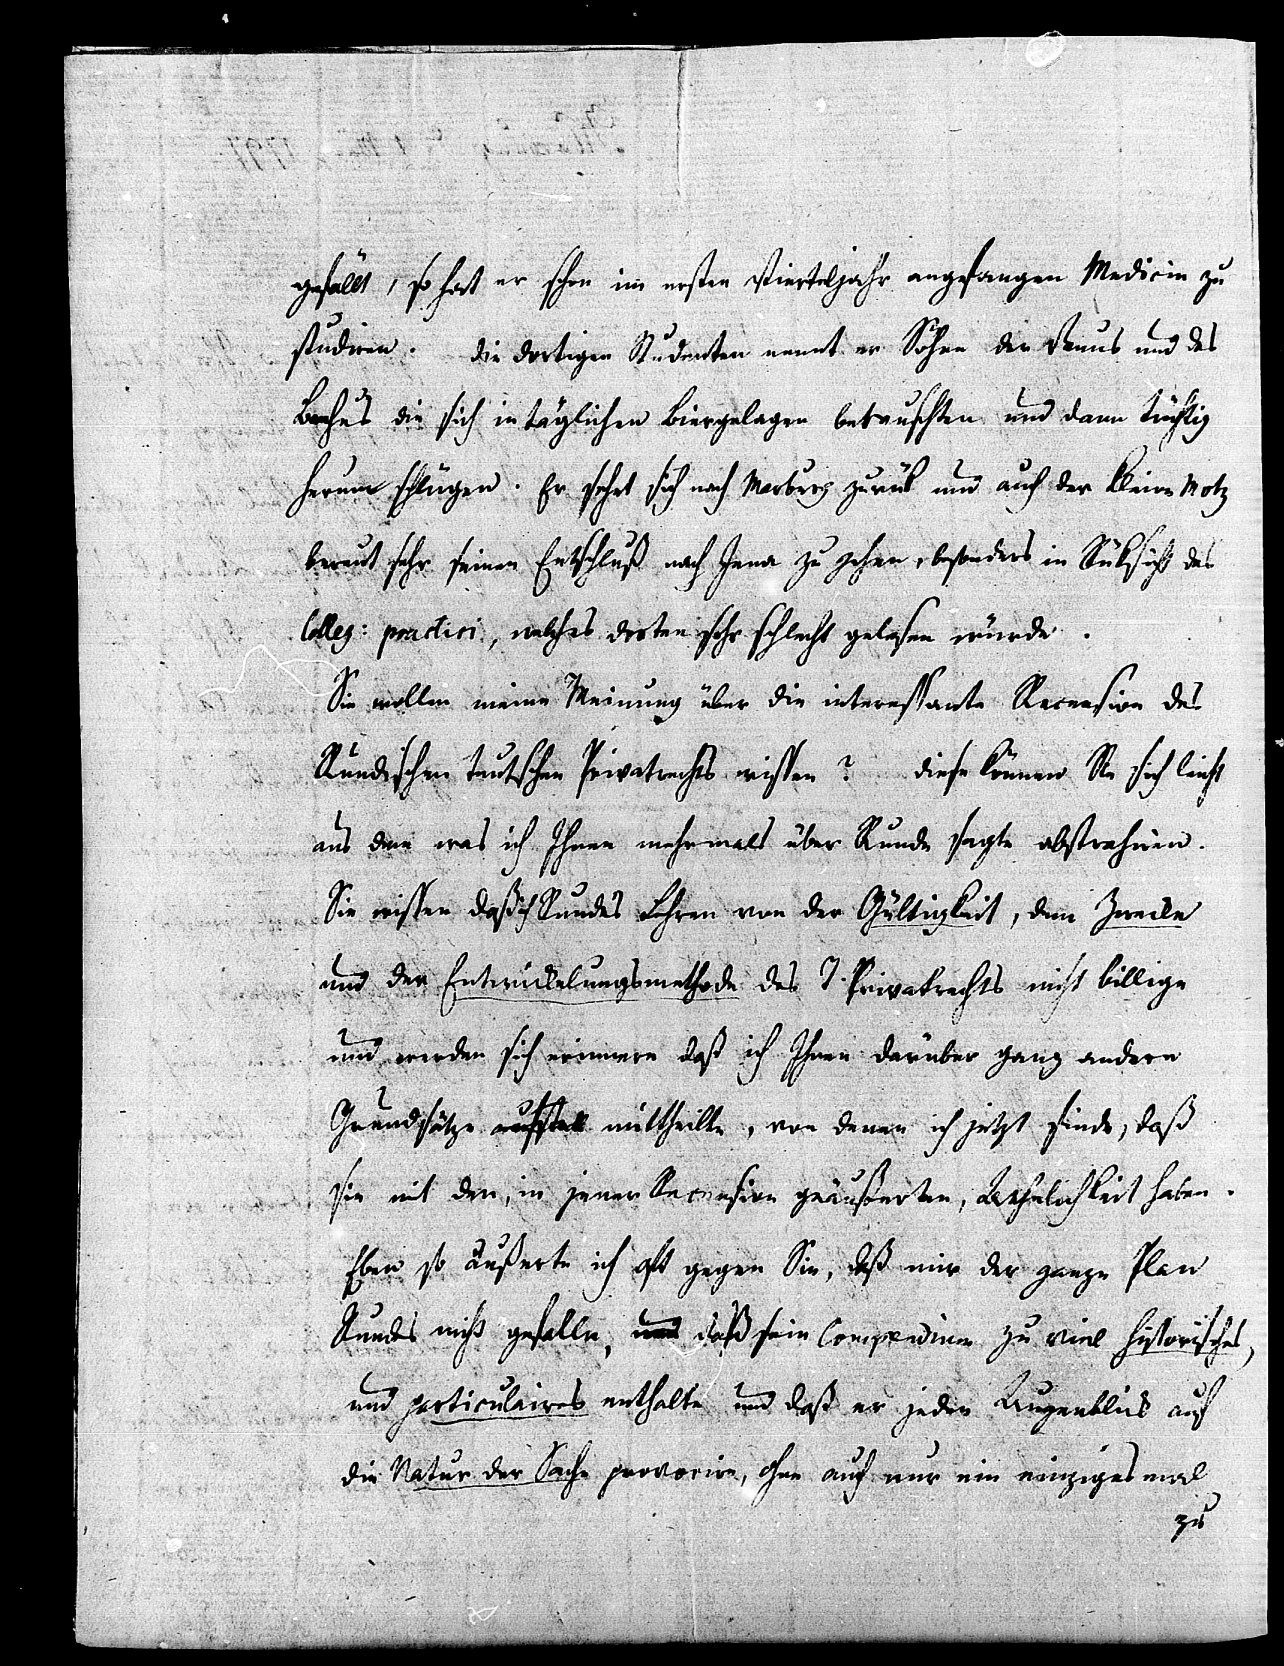 gefällt, so hat er schon im ersten Vierteljahr angefangen Medicin zu
studiren. die dortigen Studenten nennt er Söhne der Venus und des
Bachus die sich in täglichen Biergelagen berauschten und dann tüchtig
herum schlügen. Er sehnt sich nach Marburg zurük und auch der kleine Motz
bereut sehr seinen Entschluß nach Jena zu gehen, besonders in Rüksicht des
Colleg: practici, welches dorten sehr schlecht gelesen würde.
Sie wollen meine Meinung über die interessante Recension des
Rundischen teutschen Privatrechts wissen? diese können Sie sich leicht
aus dem was ich Ihnen mehrmals über Runde sagte abstrahiren.
Sie wissen daß ich Rundes Lehren von der Gültigkeit, dem Zwecke
und der Entwickelungsmethode des T. Privatrechts nicht billige
und werden sich erinnern daß ich Ihnen darüber ganz andere
Grundsätze mittheilte, von denen ich jetzt finde, daß
sie mit den, in jener Recension geäußerten, Aehnlichkeit haben.
Eben so äußerte ich oft gegen Sie, daß mir der ganze Plan
Rundes nicht gefalle, daß sein Compendium zu viel historisches,
und particulaires enthalte und daß er jeden Augenblick auf
die Natur der Sache provocire, ohne auch nur ein einzigesmal
zu